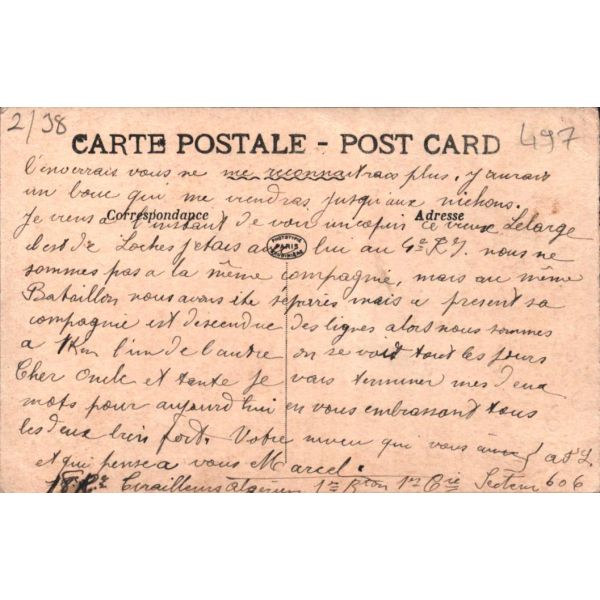 2/38
497
CARTE POSTALE - POST CARD
l'enverrais vous ne me reconnaitrais plus. J'aurais
un bouc qui me viendras jusqu'aux nichons.
Correspondance
Adresse
Je viens a l'instant de voir un copin ce vieux Lelarge
il est de Loches j'etais avec lui au 4e R.Z. nous ne
PHOTOTYPIE PARIS
sommes pas a la même compagnie, mais au même
Bataillon nous avons ete separés mais a present sa
compagnie est descendue des lignes alors nous sommes
a 1Km l'un de l'autre on se voit tout les jours
Cher Oncle et tante je vais terminer mes deux
mots pour aujourd'hui en vous embrassant tous
les deux bien fort. Votre neveu qui vous aime
et qui pense a vous Marcel.
18e Rt Tirailleurs algerien 1er Bton 1re Cie Secteur 606